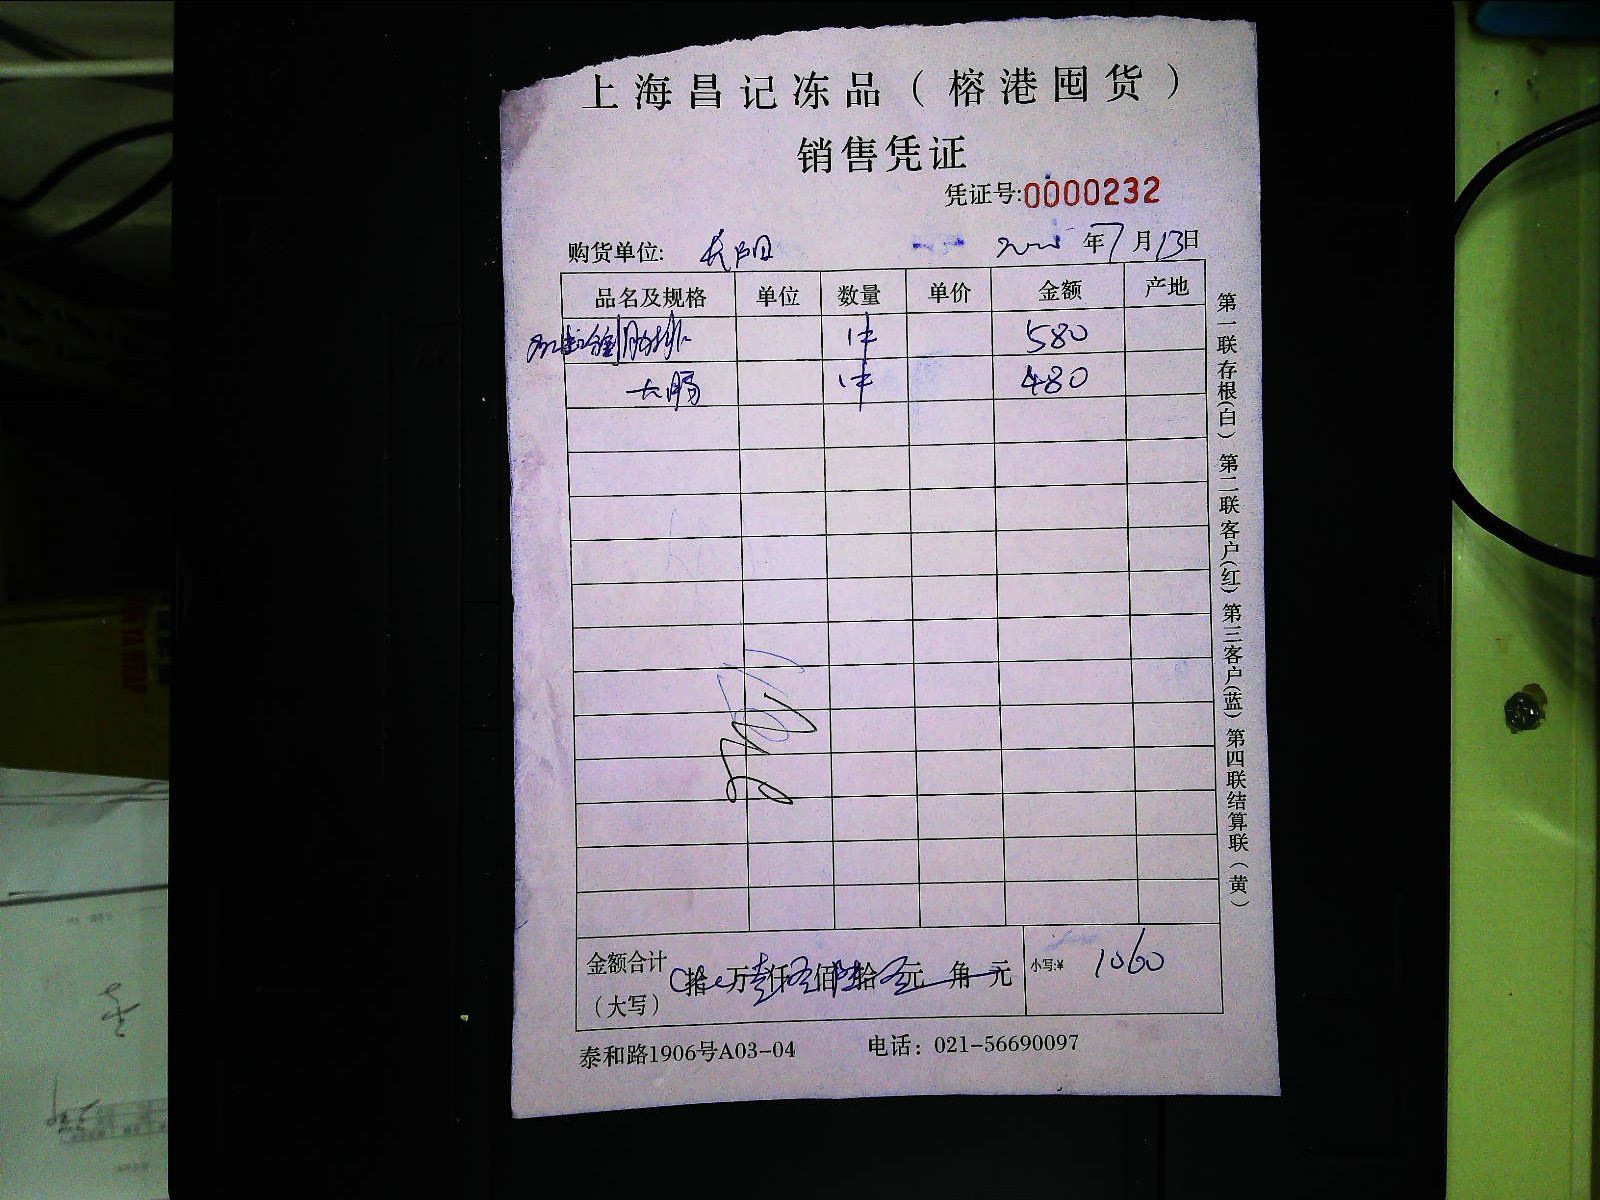 上海昌记冻品（榕港囤货）
销售凭证
凭证号:0000232
购货单位: 长阳 2025年7月13日
品名及规格 单位 数量 单价 金额 产地
肋排 1件 580
大肠 1件 480
金额合计（大写） 拾 万壹仟零佰陆拾零元 角 元 小写:¥ 1060
泰和路1906号A03-04 电话：021-56690097
第一联存根（白）第二联客户（红）第三客户（蓝）第四联结算联（黄）